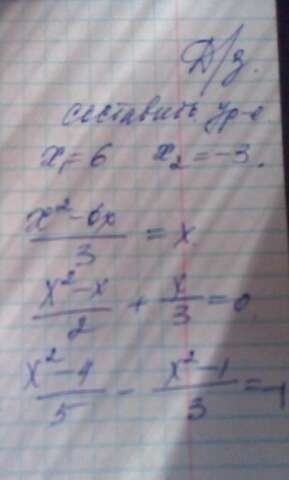 Д/з.
составить ур-е
x₁=6 x₂=-3.
(x²-6x)/3 = x
(x²-x)/2 + x/3 = 0
(x²-4)/5 - (x²-1)/3 = -1